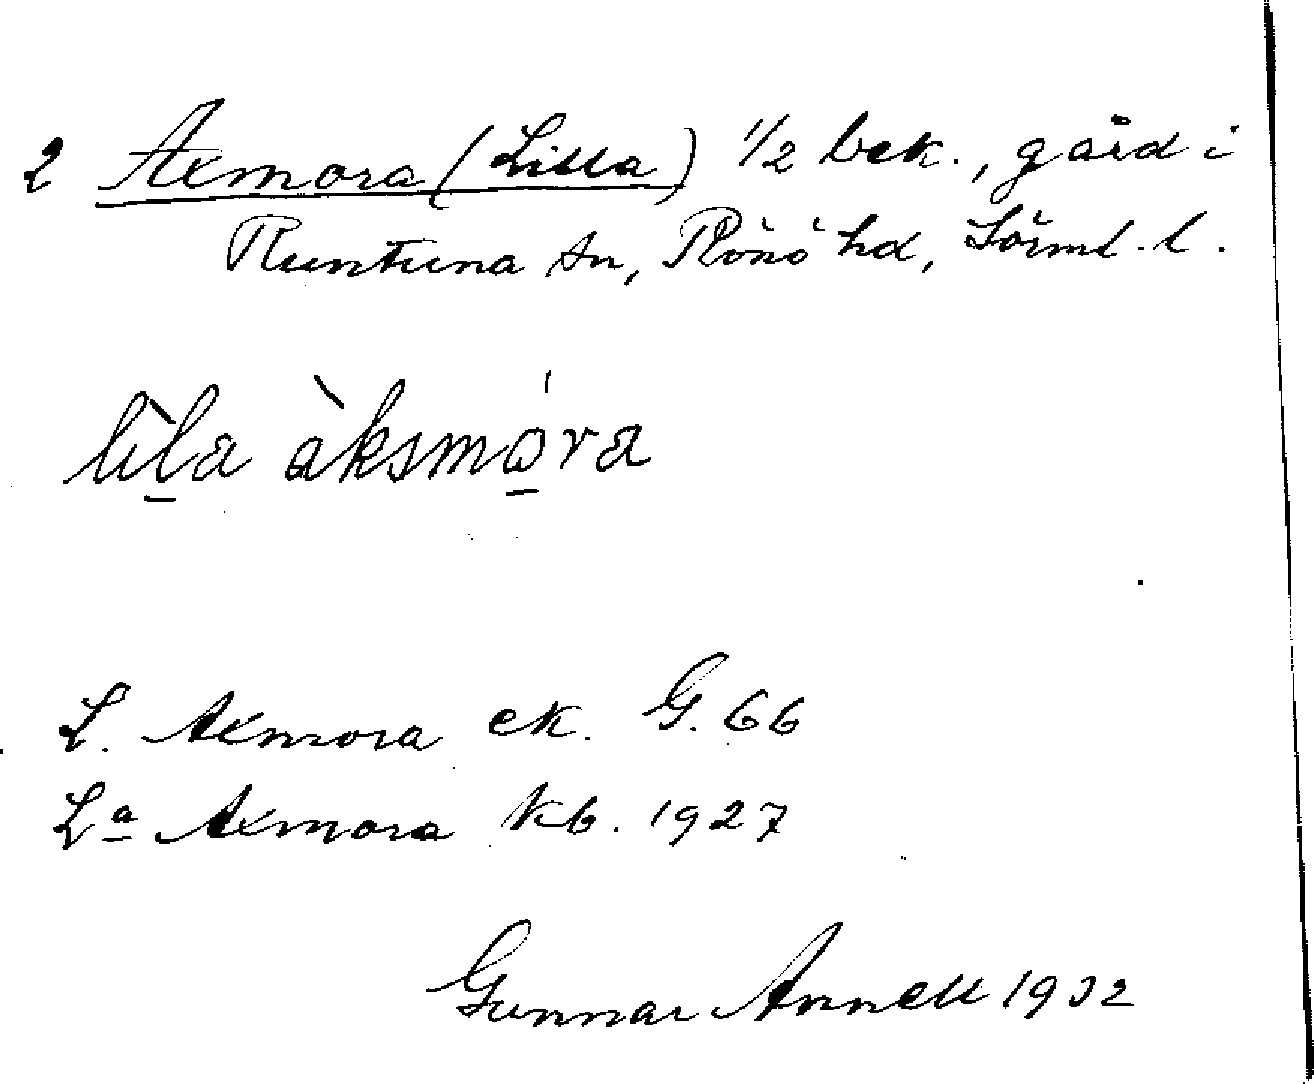 2 Axmora (Lilla) 1/2 bek., gård i
Runtuna sn, Rönö hd, Sörml. l.
lìl̠a àksmo̠ra
L. Axmora ek. G. 66
Lª Axmora kb. 1927
Gunnar Annell 1932